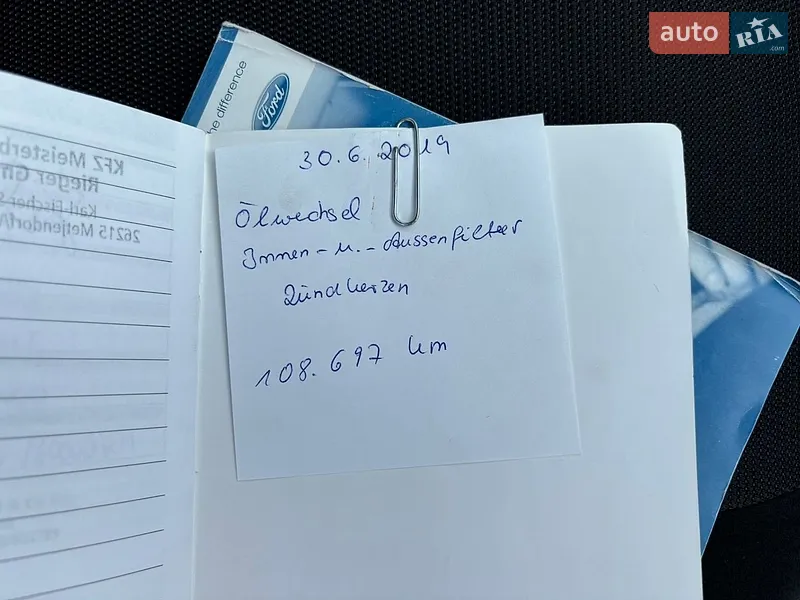 auto RIA
.com
he difference
Ford
KFZ Meisterb
Rieger Gm
Karl-Fischer-S
26215 Metjendorf/
30.6.2019
Ölwechsel
Innen- u. - Aussenfilter
Zündkerzen
108.697 km